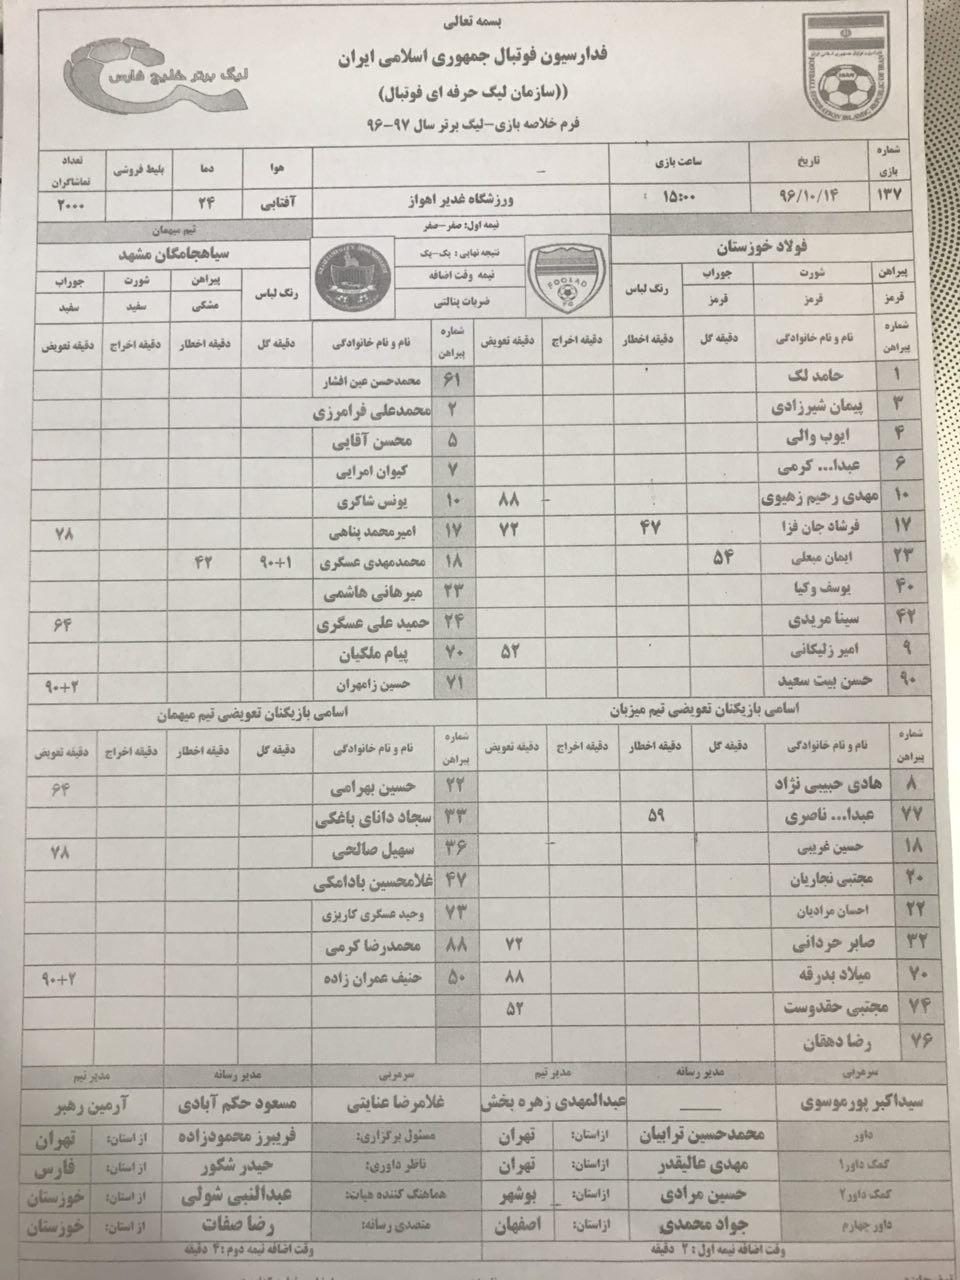 بسمه تعالی
فدارسیون فوتبال جمهوری اسلامی ایران
((سازمان لیگ حرفه ای فوتبال)
فرم خلاصه بازی-لیگ برتر سال ۹۷-۹۶
لیگ برتر خلیج فارس
شماره بازی تاریخ ساعت بازی هوا دما بلیط فروشی تعداد تماشاگران
۱۳۷ ۹۶/۱۰/۱۴ ۱۵:۰۰ ورزشگاه غدیر اهواز آفتابی ۲۴ ۲۰۰۰
نیمه اول: صفر-صفر تیم میهمان
فولاد خوزستان نتیجه نهایی: یک-یک سیاهجامگان مشهد
نیمه وقت اضافه
ضربات پنالتی
FOOLAD FC
پیراهن شورت جوراب رنگ لباس رنگ لباس پیراهن شورت جوراب
قرمز قرمز قرمز مشکی سفید سفید
شماره پیراهن نام و نام خانوادگی دقیقه گل دقیقه اخطار دقیقه اخراج دقیقه تعویض شماره پیراهن نام و نام خانوادگی دقیقه گل دقیقه اخطار دقیقه اخراج دقیقه تعویض
۱ حامد لک ۶۱ محمدحسن عین افشار
۳ پیمان شیرزادی ۲ محمدعلی فرامرزی
۴ ایوب والی ۵ محسن آقایی
۶ عبدا... کرمی ۷ کیوان امرایی
۱۰ مهدی رحیم زهیوی ۸۸ ۱۰ یونس شاکری
۱۷ فرشاد جان فزا ۴۷ ۷۲ ۱۷ امیرمحمد پناهی ۷۸
۲۳ ایمان مبعلی ۵۴ ۱۸ محمدمهدی عسگری ۹۰+۱ ۴۲
۴۰ یوسف وکیا ۲۳ میرهانی هاشمی
۴۲ سینا مریدی ۲۴ حمید علی عسگری ۶۴
۹ امیر زلیکانی ۵۲ ۷۰ پیام ملکیان
۹۰ حسن بیت سعید ۷۱ حسین زامهران ۹۰+۲
اسامی بازیکنان تعویضی تیم میزبان اسامی بازیکنان تعویضی تیم میهمان
شماره پیراهن نام و نام خانوادگی دقیقه گل دقیقه اخطار دقیقه اخراج دقیقه تعویض شماره پیراهن نام و نام خانوادگی دقیقه گل دقیقه اخطار دقیقه اخراج دقیقه تعویض
۸ هادی حبیبی نژاد ۲۲ حسین بهرامی ۶۴
۷۷ عبدا... ناصری ۵۹ ۳۳ سجاد دانای باغکی
۱۸ حسین غریبی ۳۶ سهیل صالحی ۷۸
۲۰ مجتبی نجاریان ۴۷ غلامحسین بادامکی
۲۲ احسان مرادیان ۷۳ وحید عسگری کاریزی
۳۲ صابر حردانی ۷۲ ۸۸ محمدرضا کرمی
۷۰ میلاد بدرقه ۸۸ ۵۰ حنیف عمران زاده ۹۰+۲
۷۴ مجتبی حقدوست ۵۲
۷۶ رضا دهقان
سرمربی مدیر رسانه مدیر تیم سرمربی مدیر رسانه مدیر تیم
سیداکبر پورموسوی عبدالمهدی زهره بخش غلامرضا عنایتی مسعود حکم آبادی آرمین رهبر
داور محمدحسین ترابیان ازاستان: تهران مسئول برگزاری: فریبرز محمودزاده ازاستان: تهران
کمک داور۱ مهدی عالیقدر ازاستان: تهران ناظر داوری: حیدر شکور ازاستان: فارس
کمک داور۲ حسین مرادی ازاستان: بوشهر هماهنگ کننده هیات: عبدالنبی شولی ازاستان: خوزستان
داور چهارم جواد محمدی ازاستان: اصفهان متصدی رسانه: رضا صفات ازاستان: خوزستان
وقت اضافه نیمه اول: ۲ دقیقه وقت اضافه نیمه دوم: ۴ دقیقه